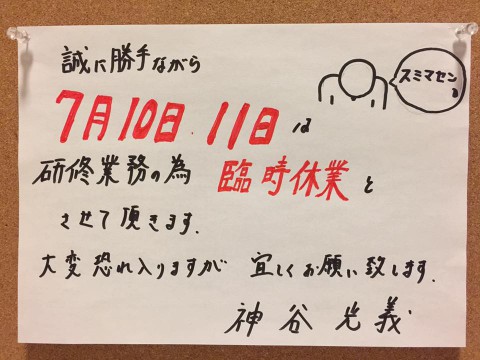 誠に勝手ながら
スミマセン
7月10日.11日は
研修業務の為 臨時休業と
させて頂きます.
大変恐れ入りますが 宜しくお願い致します.
神谷光義